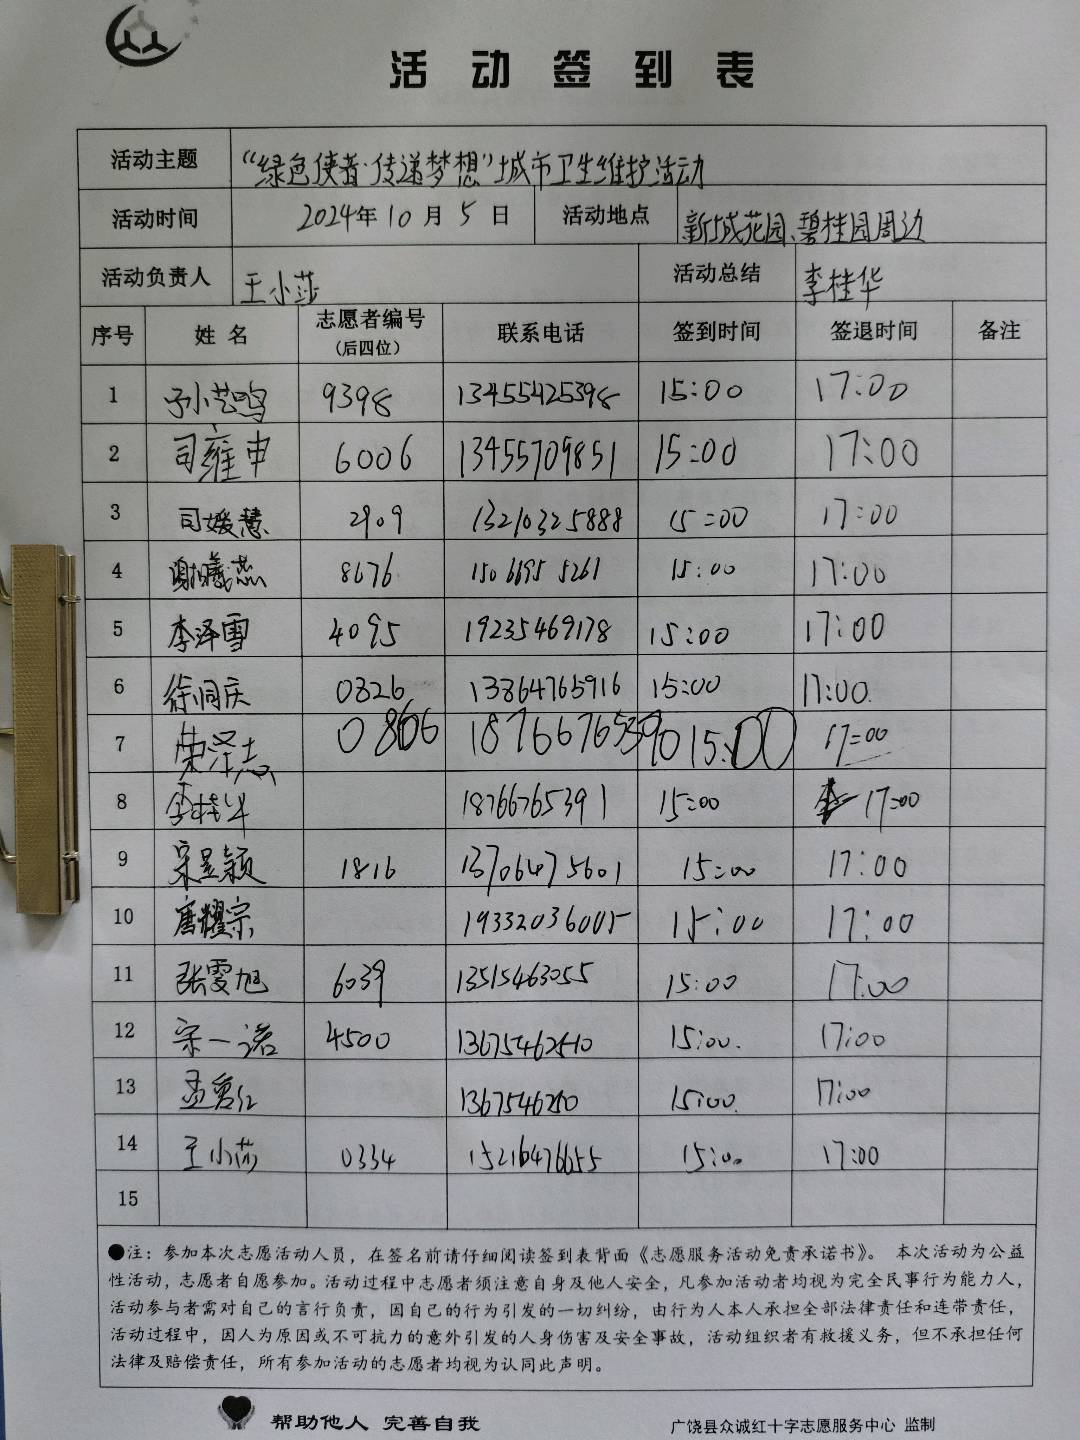 活动签到表
活动主题 “绿色使者·传递梦想”城市卫生维护活动
活动时间 2024年10月5日 活动地点 新城花园、碧桂园周边
活动负责人 王小莎 活动总结 李桂华
序号 姓名 志愿者编号（后四位） 联系电话 签到时间 签退时间 备注
1 孙艺鸣 9398 13455425398 15:00 17:00
2 司雍申 6006 13455709851 15:00 17:00
3 司媛慧 2909 13210325888 15:00 17:00
4 8676 15066955261 15:00 17:00
5 李泽雪 4095 19235469178 15:00 17:00
6 徐同庆 0326 13864765916 15:00 17:00
7 荣泽志 0866 15:00 17:00
8 李桂华 18766765391 15:00 17:00
9 宋昱颖 1816 13706475601 15:00 17:00
10 唐耀宗 19332036005 15:00 17:00
11 张雯旭 6039 13515463055 15:00 17:00
12 宋一诺 4500 15:00 17:00
13 15:00 17:00
14 王小莎 0334 15216476655 15:00 17:00
15
●注：参加本次志愿活动人员，在签名前请仔细阅读签到表背面《志愿服务活动免责承诺书》。 本次活动为公益
性活动，志愿者自愿参加。活动过程中志愿者须注意自身及他人安全，凡参加活动者均视为完全民事行为能力人，
活动参与者需对自己的言行负责，因自己的行为引发的一切纠纷，由行为人本人承担全部法律责任和连带责任，
活动过程中，因人为原因或不可抗力的意外引发的人身伤害及安全事故，活动组织者有救援义务，但不承担任何
法律及赔偿责任，所有参加活动的志愿者均视为认同此声明。
帮助他人 完善自我 广饶县众诚红十字志愿服务中心 监制